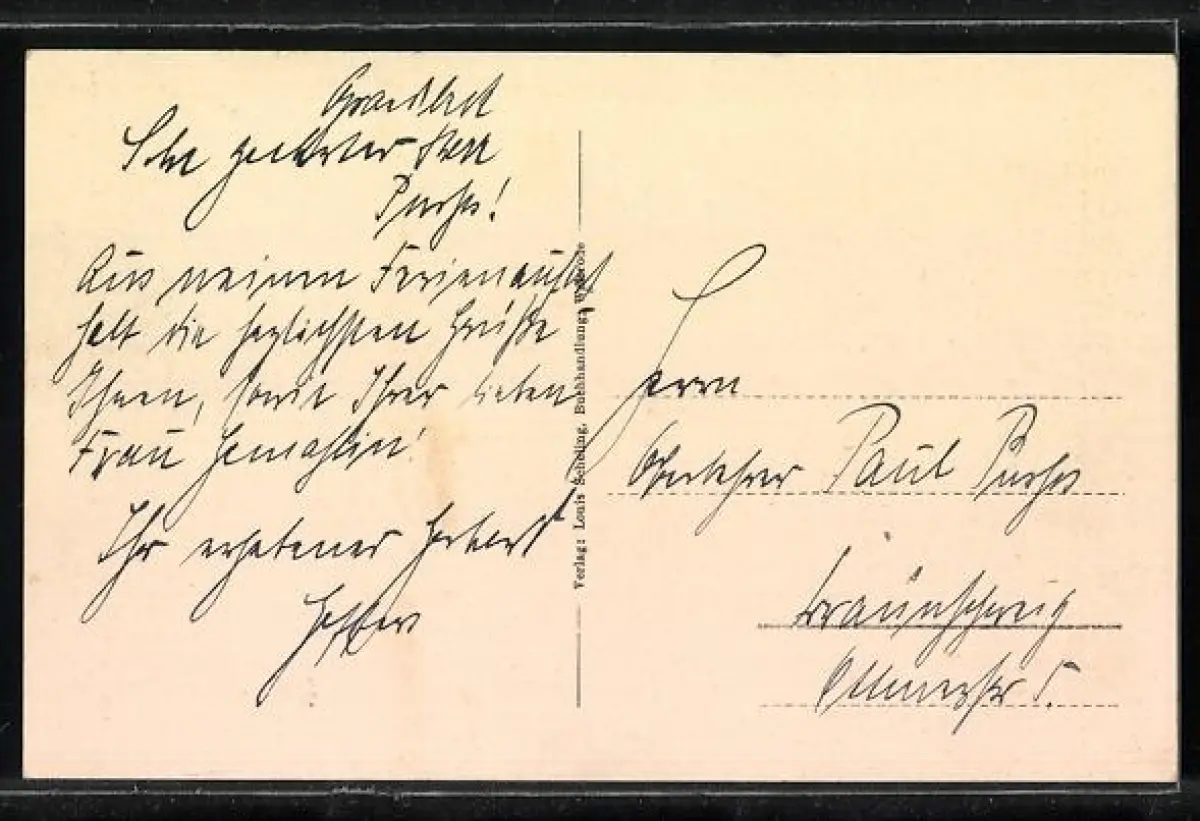 Sehr geehrter Herr
Aus meinem Ferienaufent
halt die herzlichsten Grüße
Ihnen, sowie Ihrer lieben
Frau Gemahlin!
Ihr ergebener Herbert
Verlag: Louis Scheling, Buchhandlung,
Herrn
Oberlehrer Paul
Braunschweig
5.